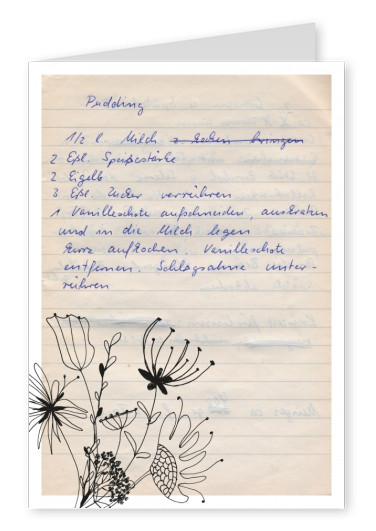 Pudding
1/2 l. Milch z. Kochen bringen
2 Eßl. Speisestärke
2 Eigelb
3 Eßl. Zucker verrühren
1 Vanilleschote aufschneiden, auskratzen
und in die Milch legen
Kurz aufkochen. Vanilleschote
entfernen. Schlagsahne unter-
rühren